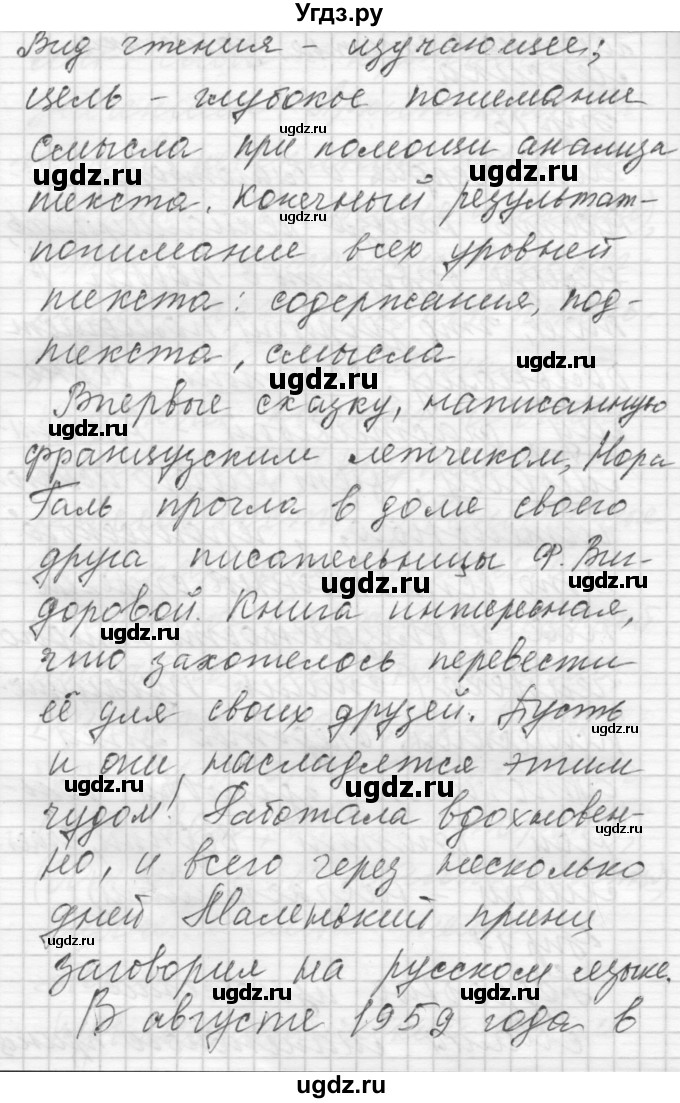 Угдз.ру
Вид чтения - изучающее;
цель - глубокое понимание
смысла при помощи анализа
текста. Конечный результат-
понимание всех уровней
текста: содержания, под-
текста, смысла
Впервые сказку, написанную
французским летчиком, Нора
Галь прочла в доме своего
друга писательницы Ф. Виг-
доровой. Книга интересная,
что захотелось перевести
её для своих друзей. Пусть
и они насладятся этим
чудом! Работала вдохновен-
но, и всего через несколько
дней Маленький принц
заговорил на русском языке.
В августе 1959 года в
ugdz.ru